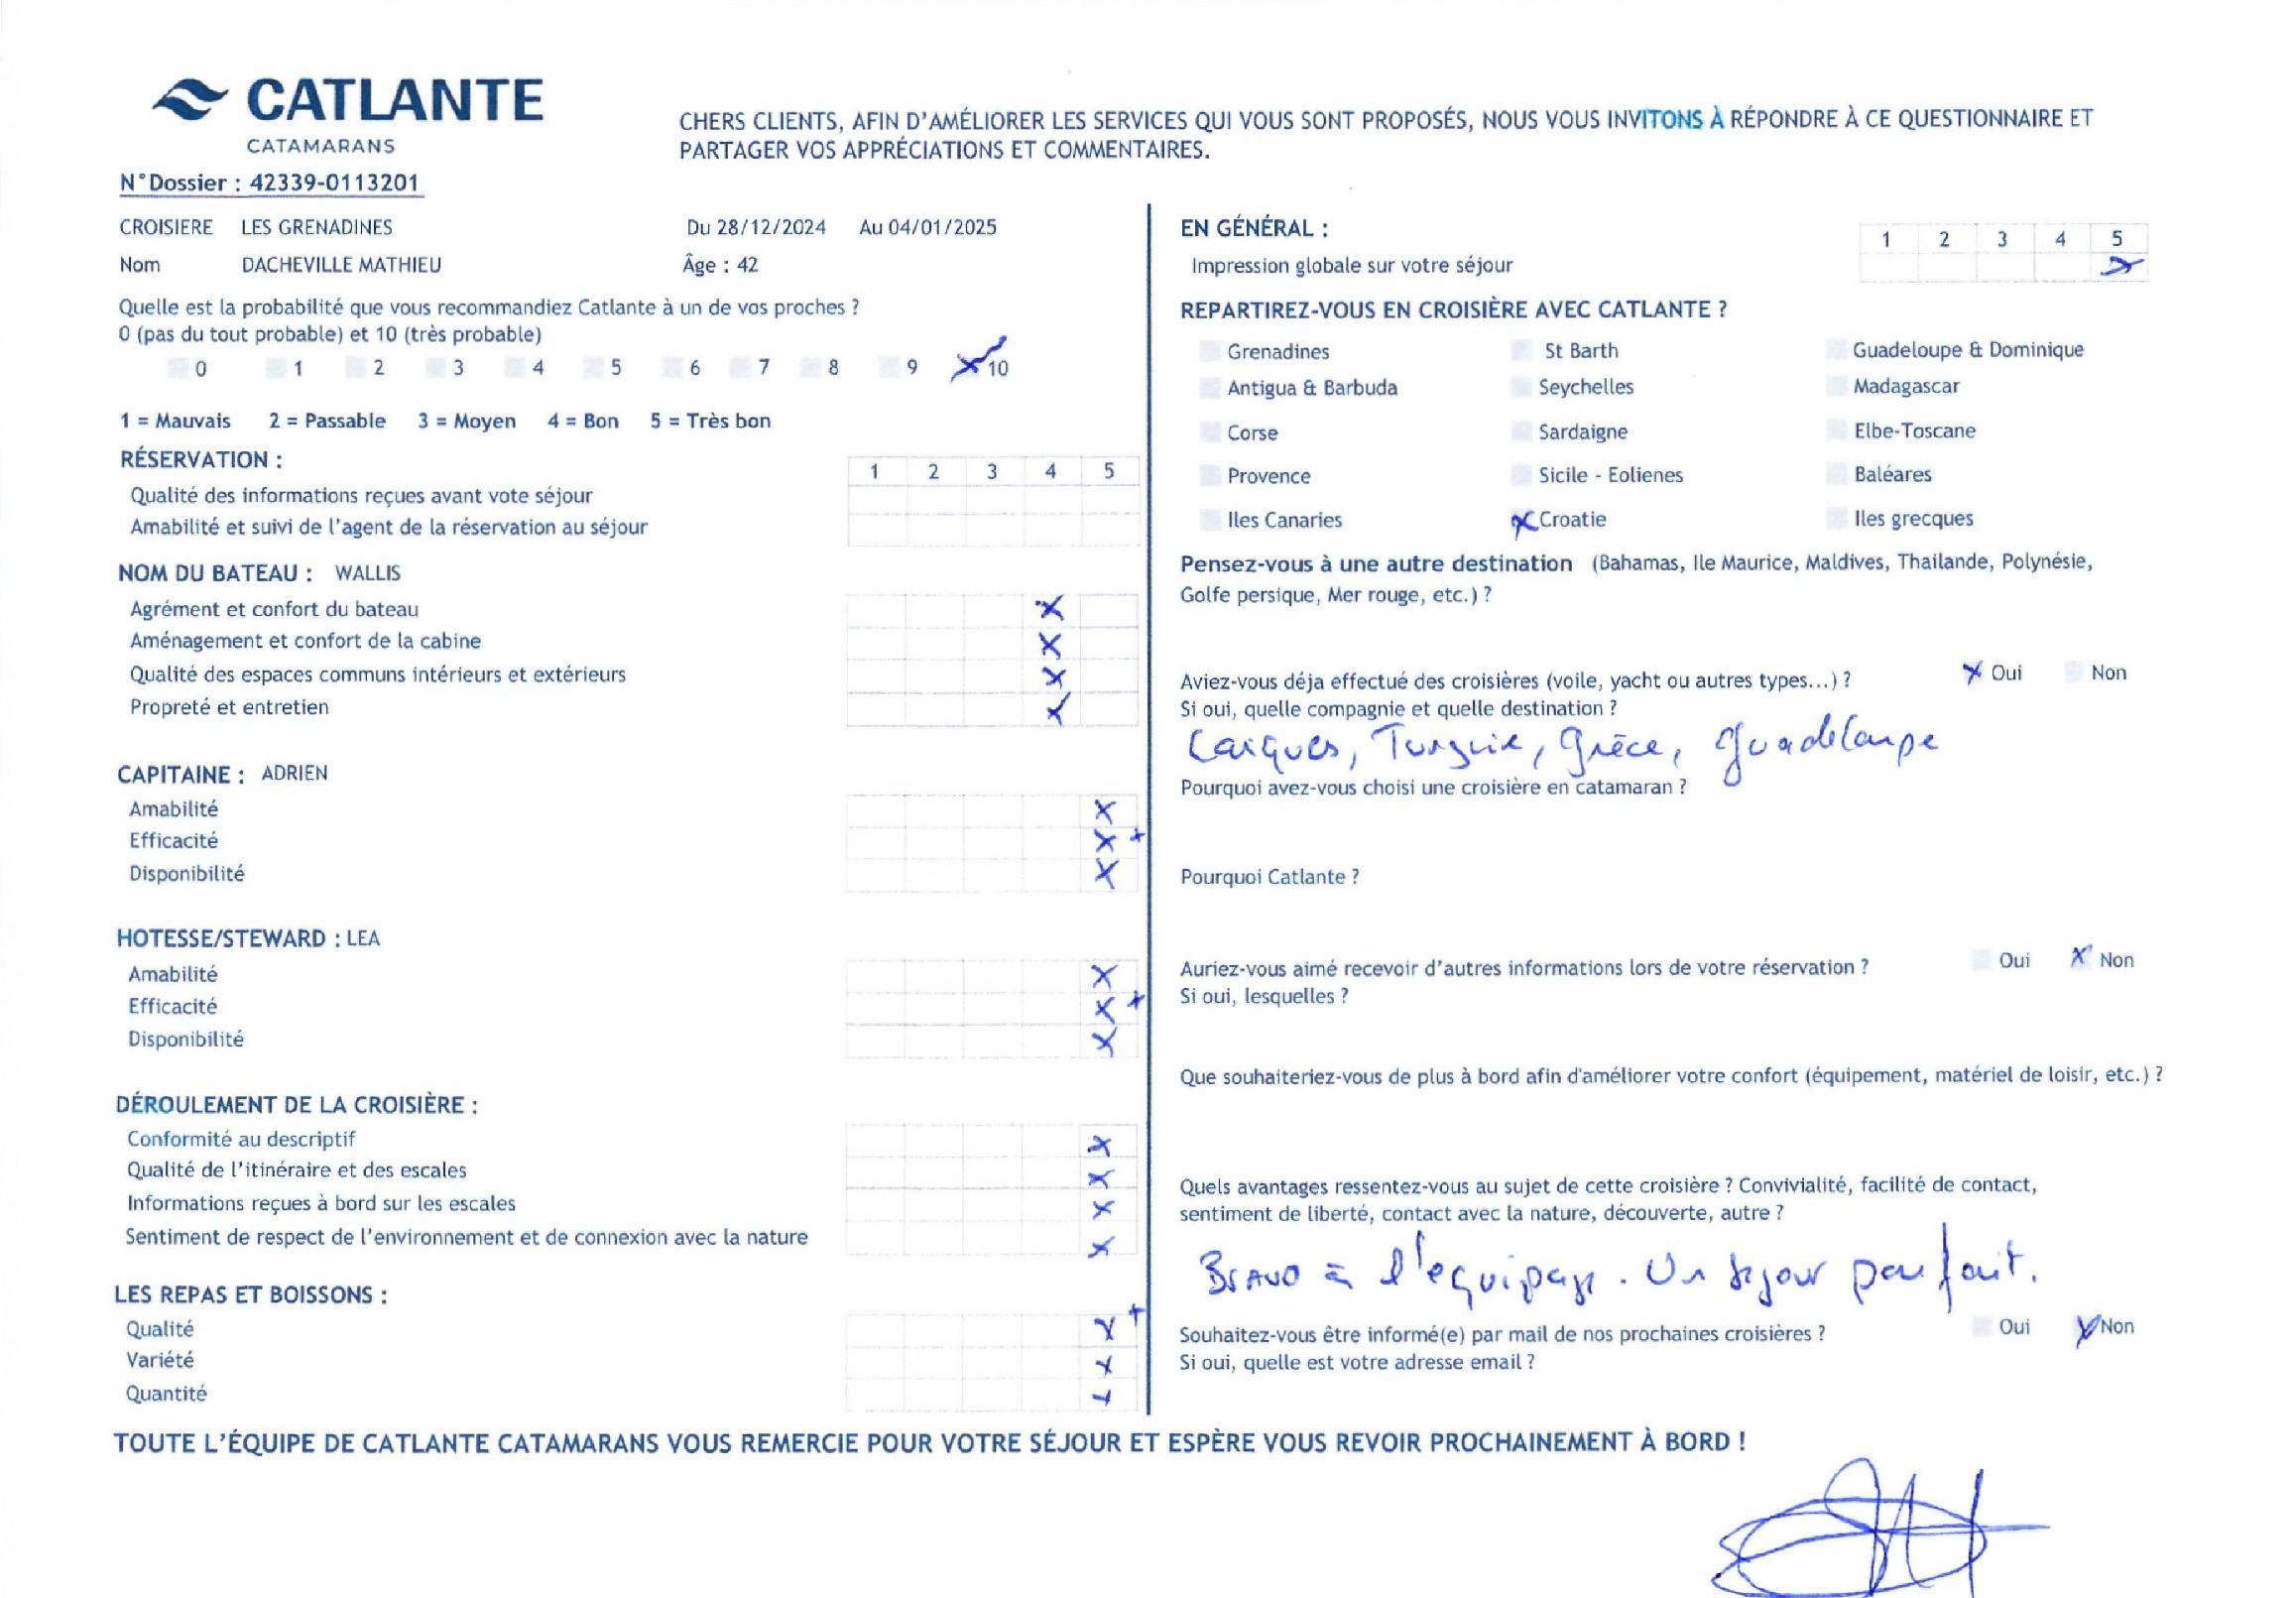 CATLANTE
CATAMARANS
CHERS CLIENTS, AFIN D'AMÉLIORER LES SERVICES QUI VOUS SONT PROPOSÉS, NOUS VOUS INVITONS À RÉPONDRE À CE QUESTIONNAIRE ET
PARTAGER VOS APPRÉCIATIONS ET COMMENTAIRES.
N°Dossier : 42339-0113201
CROISIERE LES GRENADINES Du 28/12/2024 Au 04/01/2025
Nom DACHEVILLE MATHIEU Âge : 42
Quelle est la probabilité que vous recommandiez Catlante à un de vos proches ?
0 (pas du tout probable) et 10 (très probable)
0 1 2 3 4 5 6 7 8 9 X 10
1 = Mauvais 2 = Passable 3 = Moyen 4 = Bon 5 = Très bon
RÉSERVATION :
1 2 3 4 5
Qualité des informations reçues avant vote séjour
Amabilité et suivi de l'agent de la réservation au séjour
NOM DU BATEAU : WALLIS
Agrément et confort du bateau X
Aménagement et confort de la cabine X
Qualité des espaces communs intérieurs et extérieurs X
Propreté et entretien X
CAPITAINE : ADRIEN
Amabilité X
Efficacité X +
Disponibilité X
HOTESSE/STEWARD : LEA
Amabilité X
Efficacité X +
Disponibilité X
DÉROULEMENT DE LA CROISIÈRE :
Conformité au descriptif X
Qualité de l'itinéraire et des escales X
Informations reçues à bord sur les escales X
Sentiment de respect de l'environnement et de connexion avec la nature X
LES REPAS ET BOISSONS :
Qualité X +
Variété X
Quantité X
EN GÉNÉRAL :
1 2 3 4 5
Impression globale sur votre séjour X
REPARTIREZ-VOUS EN CROISIÈRE AVEC CATLANTE ?
Grenadines St Barth Guadeloupe & Dominique
Antigua & Barbuda Seychelles Madagascar
Corse Sardaigne Elbe-Toscane
Provence Sicile - Eolienes Baléares
Iles Canaries X Croatie Iles grecques
Pensez-vous à une autre destination (Bahamas, Ile Maurice, Maldives, Thailande, Polynésie,
Golfe persique, Mer rouge, etc.) ?
Aviez-vous déja effectué des croisières (voile, yacht ou autres types...) ? X Oui Non
Si oui, quelle compagnie et quelle destination ?
Caïques, Turquie, Grèce, Guadeloupe
Pourquoi avez-vous choisi une croisière en catamaran ?
Pourquoi Catlante ?
Auriez-vous aimé recevoir d'autres informations lors de votre réservation ? Oui X Non
Si oui, lesquelles ?
Que souhaiteriez-vous de plus à bord afin d'améliorer votre confort (équipement, matériel de loisir, etc.) ?
Quels avantages ressentez-vous au sujet de cette croisière ? Convivialité, facilité de contact,
sentiment de liberté, contact avec la nature, découverte, autre ?
Bravo à l'equipage. Un sejour parfait.
Souhaitez-vous être informé(e) par mail de nos prochaines croisières ? Oui X Non
Si oui, quelle est votre adresse email ?
TOUTE L'ÉQUIPE DE CATLANTE CATAMARANS VOUS REMERCIE POUR VOTRE SÉJOUR ET ESPÈRE VOUS REVOIR PROCHAINEMENT À BORD !